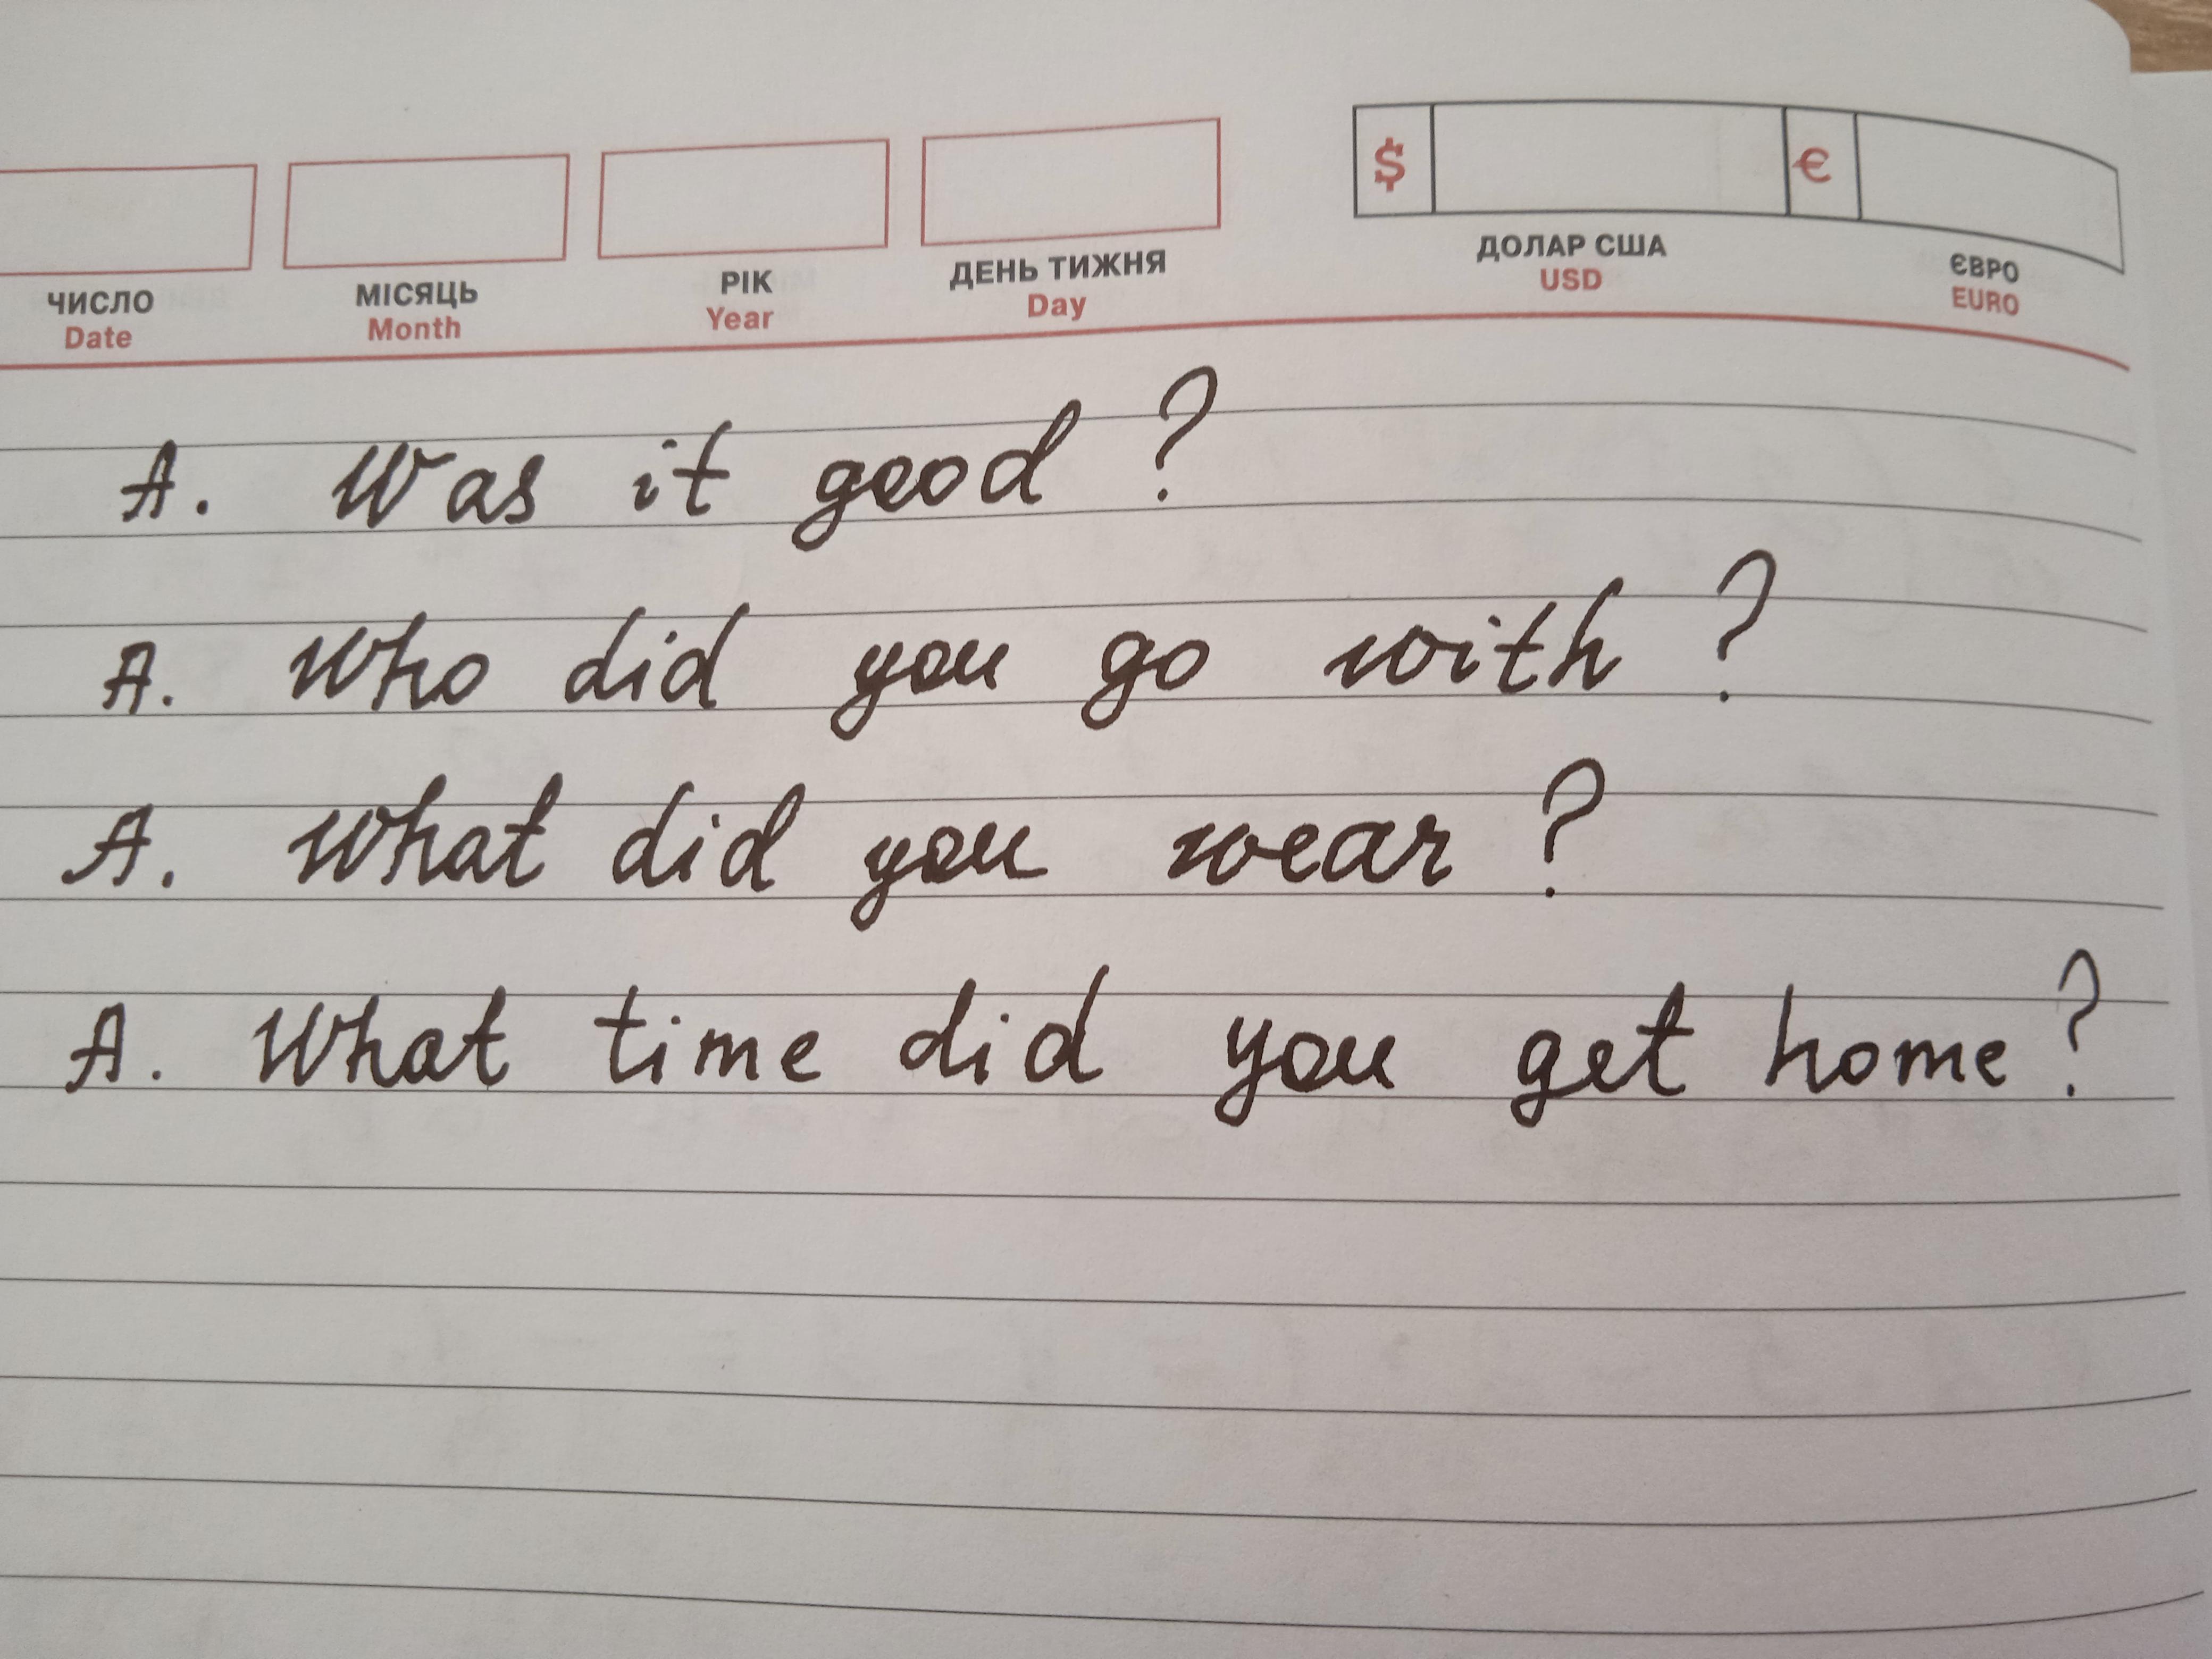 $ €
ЧИСЛО МІСЯЦЬ РІК ДЕНЬ ТИЖНЯ ДОЛАР США ЄВРО
Date Month Year Day USD EURO
A. Was it good ?
A. Who did you go with ?
A. What did you wear ?
A. What time did you get home ?